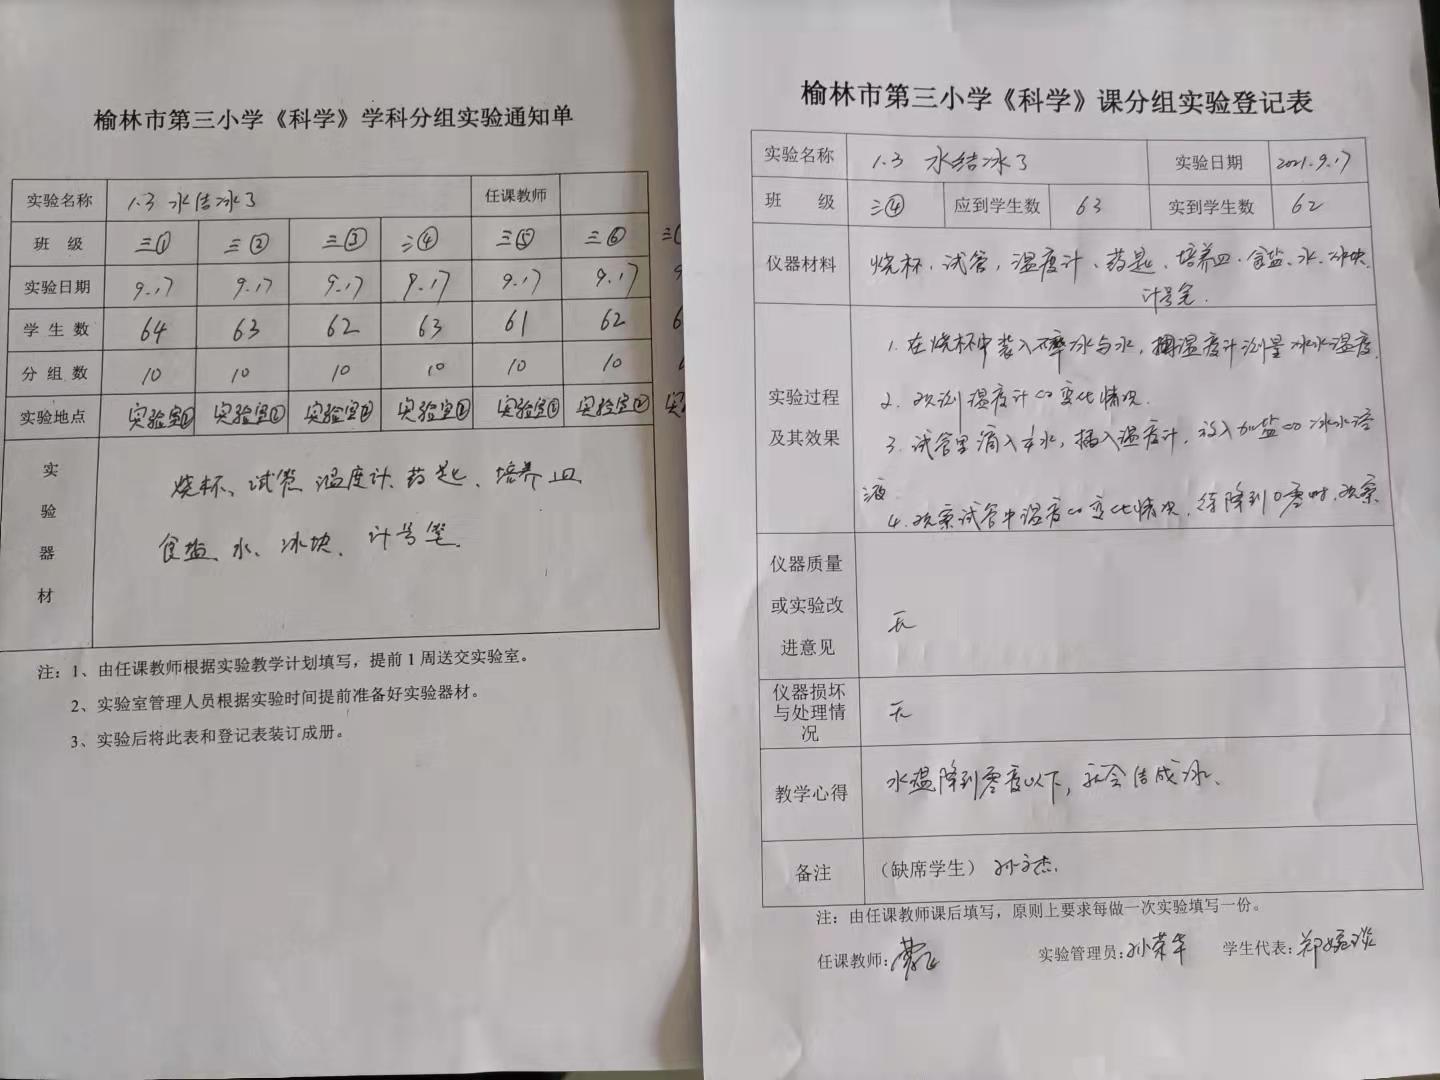 榆林市第三小学《科学》学科分组实验通知单
实验名称 1.3 水结冰了 任课教师
班 级 三① 三② 三③ 三④ 三⑤ 三⑥
实验日期 9.17 9.17 9.17 9.17 9.17 9.17
学 生 数 64 63 62 63 61 62
分 组 数 10 10 10 10 10 10
实验地点 实验室 实验室 实验室 实验室 实验室 实验室
实验器材
烧杯、试管 温度计、药匙、培养皿
食盐、水、冰块、计号笔
注：1、由任课教师根据实验教学计划填写，提前1周送交实验室。
2、实验室管理人员根据实验时间提前准备好实验器材。
3、实验后将此表和登记表装订成册。
榆林市第三小学《科学》课分组实验登记表
实验名称 1.3 水结冰了 实验日期 2021.9.17
班 级 三④ 应到学生数 63 实到学生数 62
仪器材料 烧杯、试管，温度计、药匙、培养皿、食盐、水、冰块、
计号笔.
实验过程及其效果
1. 在烧杯中装入碎冰与水，用温度计测量冰水温度.
2. 观测温度计的变化情况.
3. 试管里滴入半水，插入温度计，放入加盐的冰水溶
液.
4. 观察试管中温度的变化情况，待降到0度时，观察
仪器质量或实验改进意见 无
仪器损坏与处理情况 无
教学心得 水温降到零度以下，就会结成冰、
备注 （缺席学生） 孙文杰.
注：由任课教师课后填写，原则上要求每做一次实验填写一份。
任课教师： 实验管理员：孙荣华 学生代表：郑